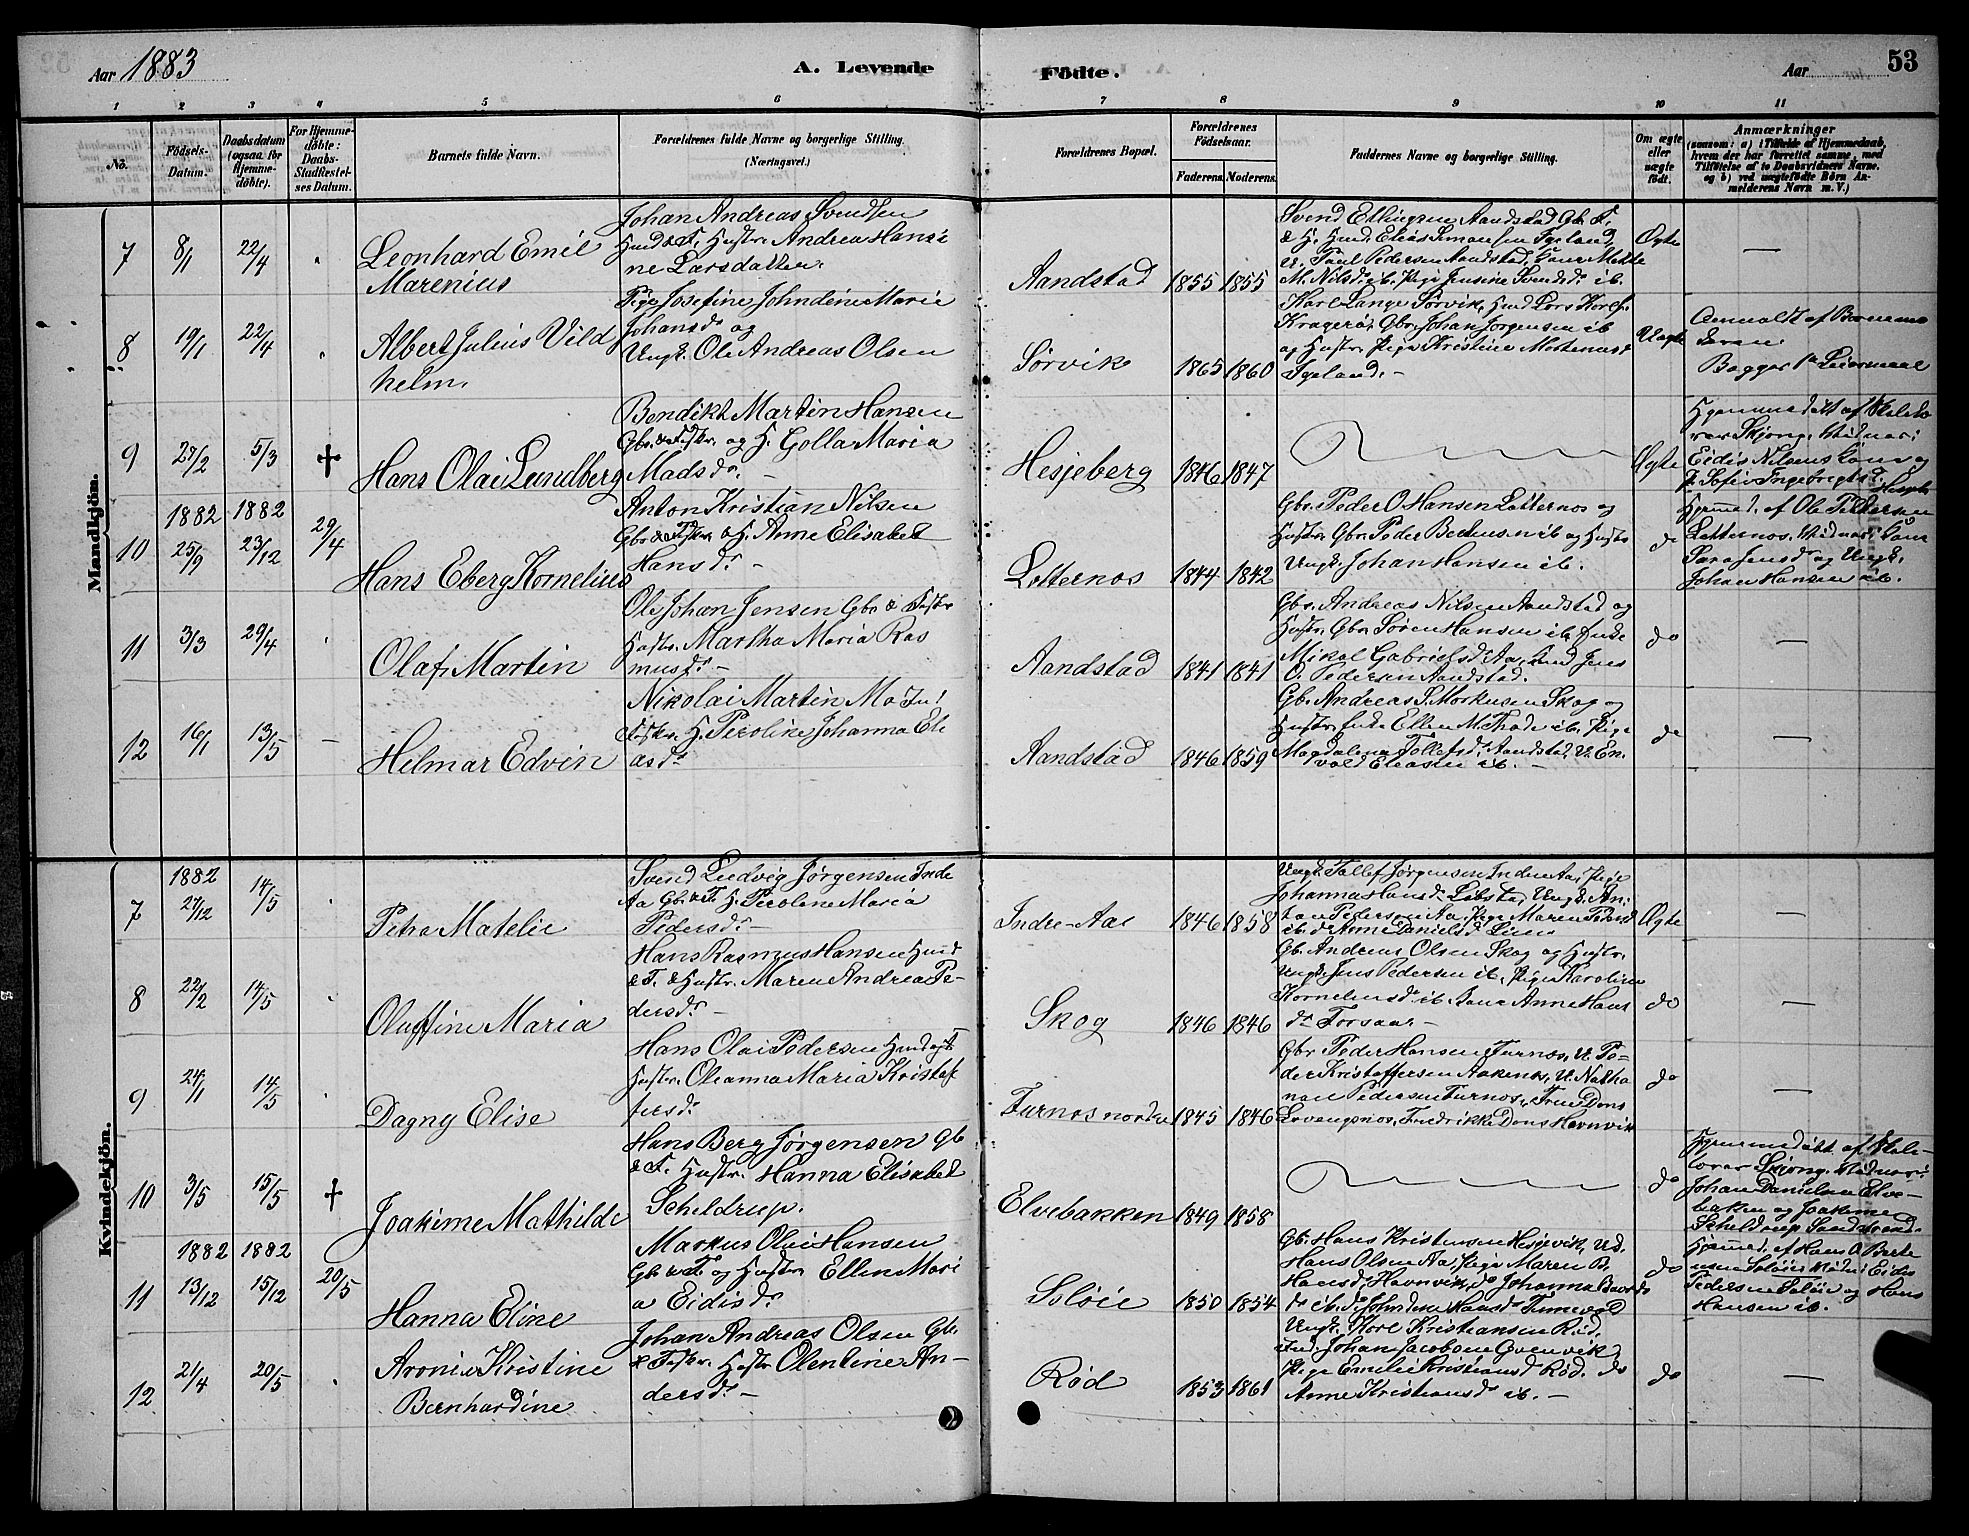 Aar 1883
A. Levende
Fødte.
Aar
53
1 2 3 4 5 6 7 8 9 10 11
No.
Fødsels-
Datum.
Daabsdatum
(ogsaa for
Hjemme-
døbte).
For Hjemme-
døbte:
Daabs-
Stadfestel-
ses Datum.
Barnets fulde Navn.
Forældrenes fulde Navne og borgerlige Stilling.
(Næringsvei.)
Forældrenes Bopæl.
Forældrenes
Fødselsaar.
Faderens. Moderens.
Faddernes Navne og borgerlige Stilling.
Om ægte
eller
uægte
født.
Anmærkninger
(saasom: a) i Tilfælde af Hjemmedaab,
hvem der har forrettet samme, med
Tilføielse af to Daabsvidners Navne,
og b) ved uægtefødte Børn An-
melderens Navn m. V.)
Mandkjön.
7 8/1 22/4
Leonhard Emil
Marenius
Johan Andreas Svendsen
Hmd & F. Hustr. Andrea Hansi
ne Larsdatter.
Aandstad 1855 1855
Svend Ellingsen Aandstad Gb. F.
& H. Hmd. Elias Simonsen Igeland,
U. Paul Pedersen Aandstad, Kone Mette
M. Nilsd. ib. Pige Jensine Svendsd. ib.
Ægte —
8 19/1 22/4
Albert Julius Vild
helm.
Pige Josefine Johndine Marie
Johansdr og
Ungk. Ole Andreas Olsen
Sørvik 1865 1860
Karl Lange Sørvik, Hmd Lars Karls.
Kragerø, Gbr. Johan Jørgensen ib
og Hustr. Pige Kristine Mortensd
Igeland. —
Uægte
Anmeldt af Barnemo
deren
9 27/2 5/3 †
Hans Olai Lundberg
Bendikt Martin Hansen
Gbr. & Fiskr. og H. Golla Maria
Madsdr. —
Hesjeberg 1846 1847
Ægte
Hjemmedøbt af Skolelæ
rer Skjong. Vidner:
Eidis Nilsens Kone og
P. Sofie Ingebrigtsd.
10 1882 25/9 1882 23/12 29/4
Hans Eberg Kornelius
Anton Kristian Nilsen
Gbr & Fiskr. & H. Anne Elisabet
Hansdr. —
Lotternos 1844 1842
Gbr. Peder O. Hansen Lotternos og
Hustr. Gbr. Peder Berthusen ib og Hustr
Ungk. Johan Hansen ib.
do
Hjemmed. af Ole Pedersen
Lotternos. Vidner: Kone
Sara Jensdr og Ungk.
Johan Hansen ib.
11 3/3 29/4
Olaf Martin
Ole Johan Jensen Gbr & Fiskr
Hustr. Martha Maria Ras
musdr. —
Aandstad 1841 1841
Gbr. Andreas Nilsen Aandstad og
Hustr. Gbr. Søren Hansen ib. Enke
Mikal Gabrielsdr Aa, Hmd Jens
O. Pedersen Aandstad.
do —
12 16/1 13/5 —
Helmar Edvin
Nikolai Martin
Fiskr. H. Peroline Johanna Eli
asdr
Aandstad 1846 1859
Gb. Andreas S. Markusen Skog og
Hustr. Enke Ellen M. Thode ib. Pige
Magdalena Tollefsdr. Aandstad, U. En
vold Eliasen ib. —
do —
Kvindekjön.
7 1882 27/12 14/5
Petra Matelie
Svend Ludvig Jørgensen Indre
Aa Gb. & F. H. Peroline Maria
Pedersdr —
Indre-Aa 1846 1858
Ungk. Tollef Jørgensen Indre Aa, Pige
Johanna Hansdr Løbstad, Ungk. An-
ton Pedersen Aa. Pige Maren Pedersd
ib. do Anne Danielsd. Lien
Ægte —
8 22/2 14/5
Oluffine Maria
Hans Rasmus Hansen Hmd
& F. & Hustr. Maren Andrea Pe-
dersdr —
Skog 1846 1846
Gb. Andreas Olsen Skog og Hustr.
Ungk. Jens Pedersen ib, Pige Karoline
Korneliusdr ib. Kone Anne Hans
dr Forsaar —
do —
9 24/1 14/5
Dagny Elise
Hans Olai Pedersen Hmd og F
Hustr. Oleanna Maria Kristof
fersdr.
Furnos nordre 1845 1846
Gbr. Peder Hansen Furnos, U. Pe-
der Kristoffersen Aakenes, U. Natha
nael Pedersen Furnos, Frue Dons
Lovangsnos, Fredrikke Dons Havnvik
do —
10 3/5 15/5 †
Joakime Mathilde
Hans Berg Jørgensen Gb
& F. Hustr. Hanna Elisabet
Scheldrup.
Elvebakken 1849 1858
do
Hjemmedøbt af Skole-
lærer Skjong. Vidner:
Johan Danielsen Elve-
bakken og Joakime
Scheldrup Sandstrand.
11 1882 13/12 1882 15/12 20/5
Hanna Eline
Markus Olai Hansen
Gb. & F. og Hustr Ellen Mari
a Eidisdr
Soløie 1850 1854
Gb. Hans Kristensen Hesjevik, Ud.
Hans Olsen Aa, Pige Maren B.
Hansd. Havnvik, do Johanna Baards
dr ib. do Johndine Hansdr
do
Hjemmed. af Hans O. Berte
usen Soløie. Vidner: Eidis
Pedersen Soløie og Hans
Hansen ib.
12 21/4 20/5
Aronie Kristine
Bernhardine
Johan Andreas Olsen Gb.
& Fiskr. Hustr Olentine An-
dersdr —
Rød 1853 1861
Ungk. Karl Kristiansen Rød,
Ind. Johan Jacobsen Grenvik,
Pige Emelie Kristiansd Rød. do
Anne Kristiansdr ib. —
do —